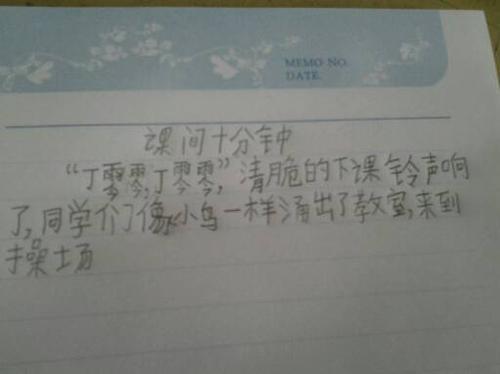 MEMO NO.
DATE.
课间十分钟
“丁零零,丁零零”,清脆的下课铃声响
了,同学们像小鸟一样涌出了教室,来到
操场